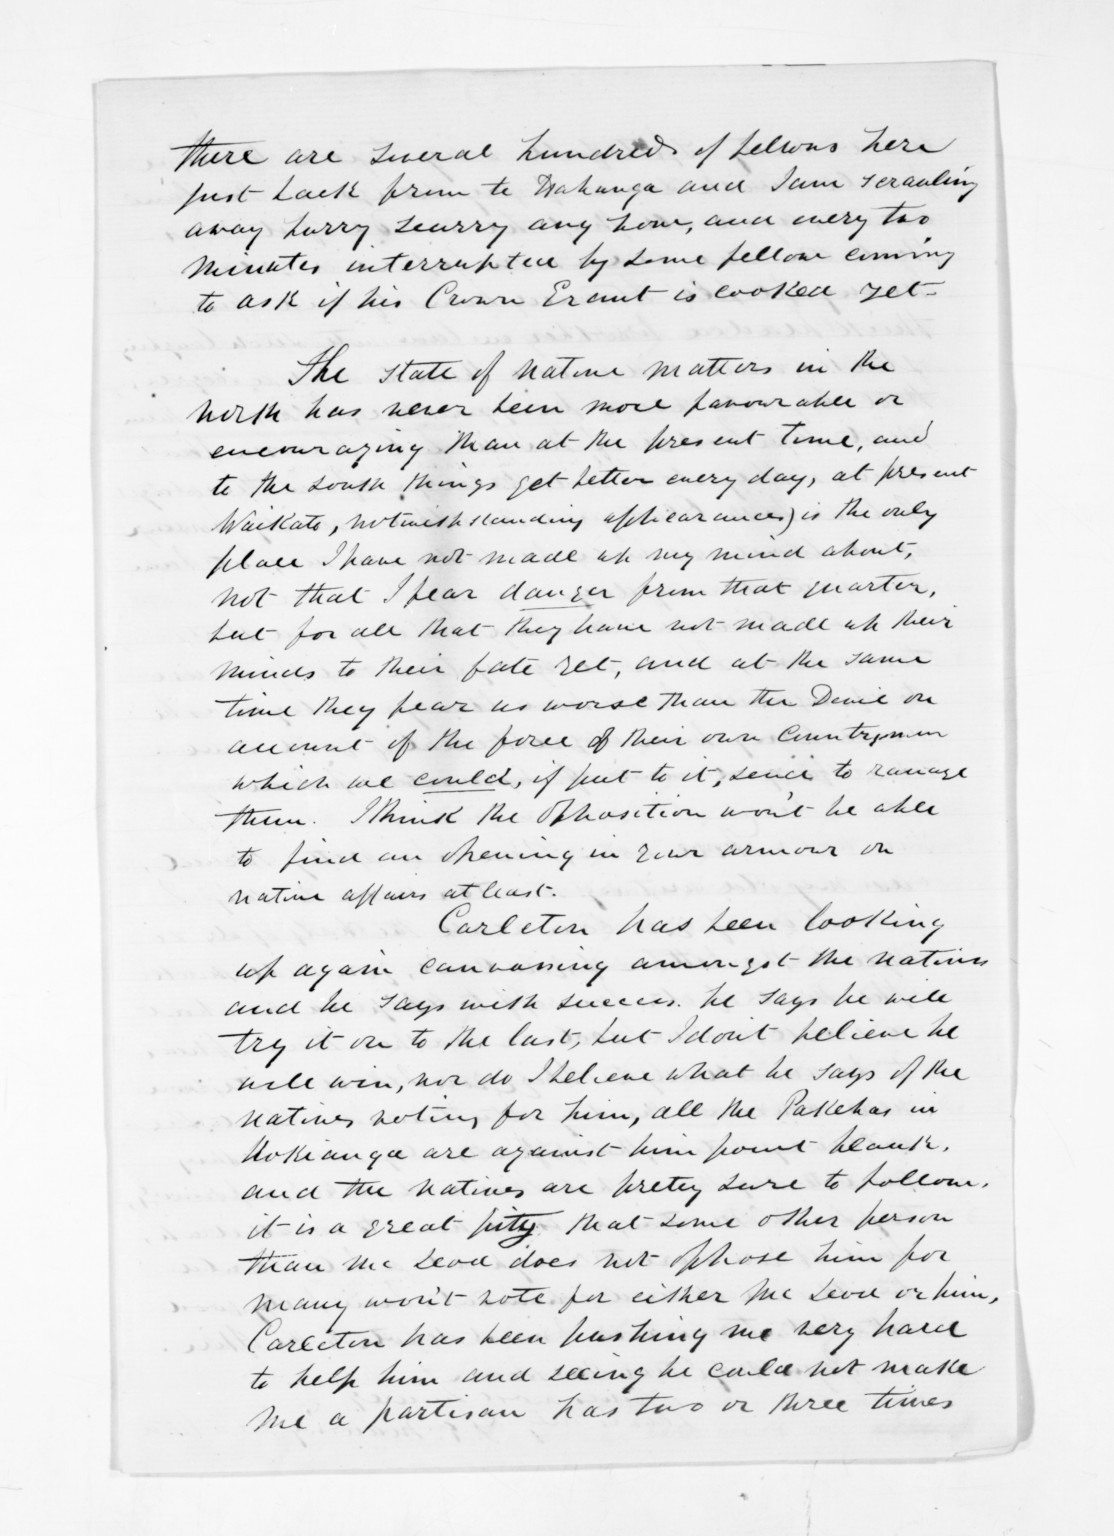 there are several hundreds of fellows here
just back from te Wahanga and I am scrawling
away hurry scurry any how, and every two
minutes interrupted by some fellow coming
to ask if his Crown Grant is cooked yet -
The state of native matters in the
north has never been more favourable or
encouraging than at the present time, and
to the south things get better every day, at present
Waikato, notwithstanding appearances) is the only
place I have not made up my mind about,
not that I fear danger from that quarter,
but for all that they have not made up their
minds to their fate yet, and at the same
time they fear us worse than the Devil on
account of the force of their own Countrymen
which we could, if put to it, send to ravage
them. I think the opposition won't be able
to find an opening in your armour on
native affairs at least.
Carleton has been looking
up again canvassing amongst the natives
and he says with success. he says he will
try it on to the last, but I don't believe he
will win, nor do I believe what he says of the
natives voting for him, all the Pakehas in
Hokianga are against him point blank.
and the natives are pretty sure to follow.
it is a great pity that some other person
than Mc Leod does not oppose him for
many won't vote for either Mc Leod or him,
Carleton has been pushing me very hard
to help him and seeing he could not make
me a partisan has two or three times